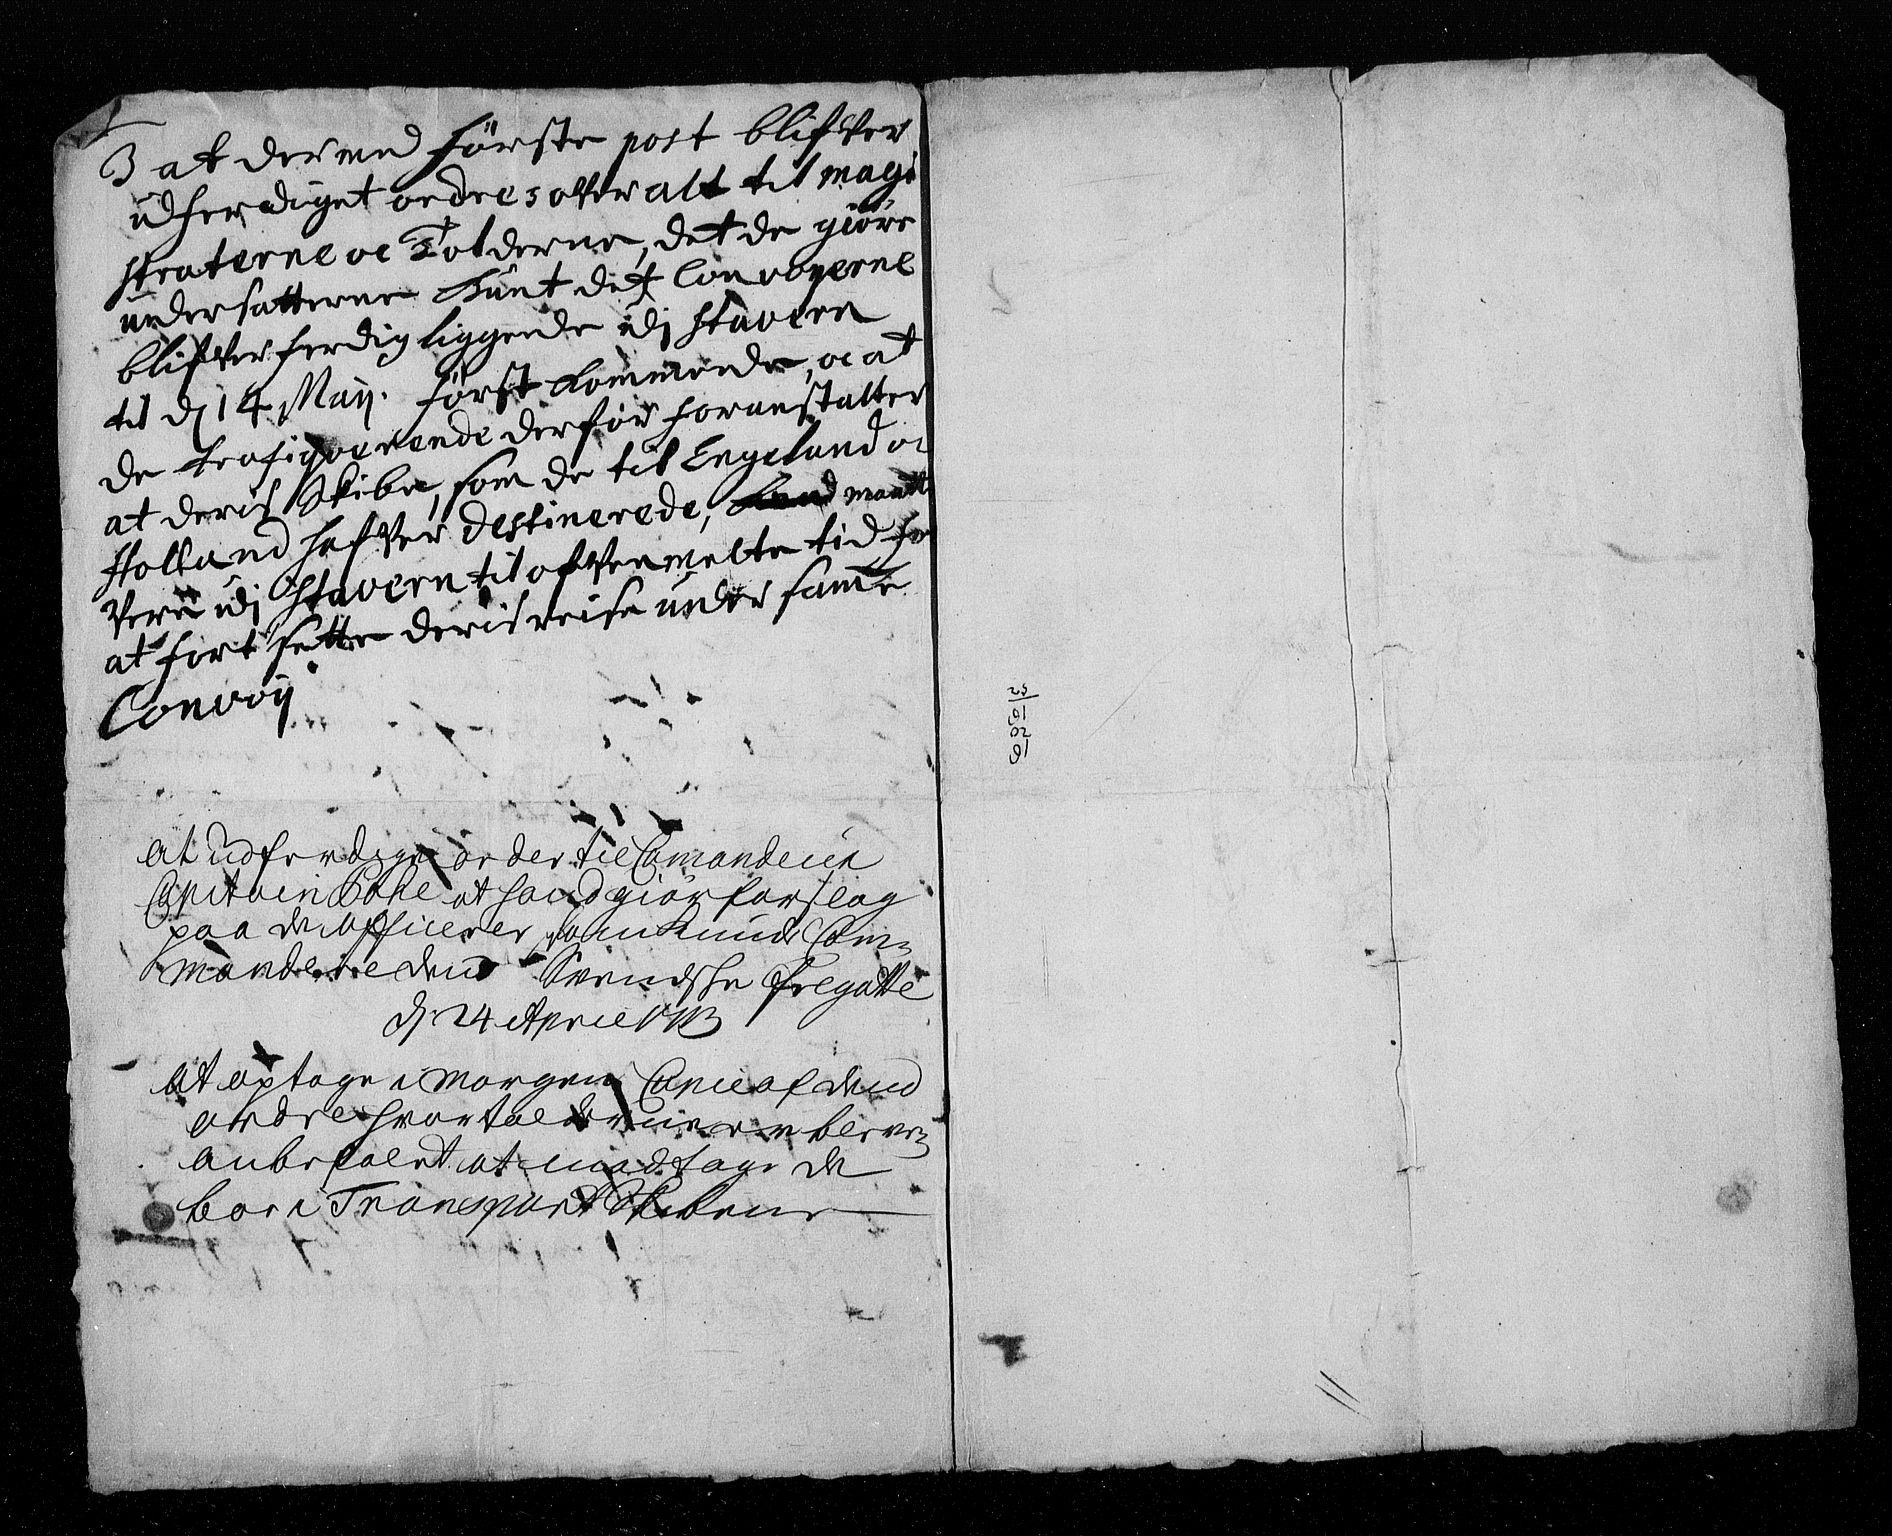 3 at der med første post blifver
udferdiget ordres ofver alt til magi
straterne oc Tolderne, det de giöre
undersatterne kunt det Convoyerne
blifver ferdig liggende udj Stavern
til d 14 Maij. først kommende, oc at
de trafiqverende derfor foranstalter
at deris Skibe, som de til Engeland oc
Holland hafver destinerede, maatte
Vere udj Stavern til ofvenmelte tid for
at fort sette deris reise under samme
Convoij
At udferdige order til Comandeur
Capitain at hand giör forslag
paa de officerer som kunde Com-
mandere dend Svendske Fregatte
d. 24 April 1713
At optage i morgen Copie af dend
ordre hvor ved er bleven
anbefalet at modtage de
i Transport Skibene
23
19
20
19